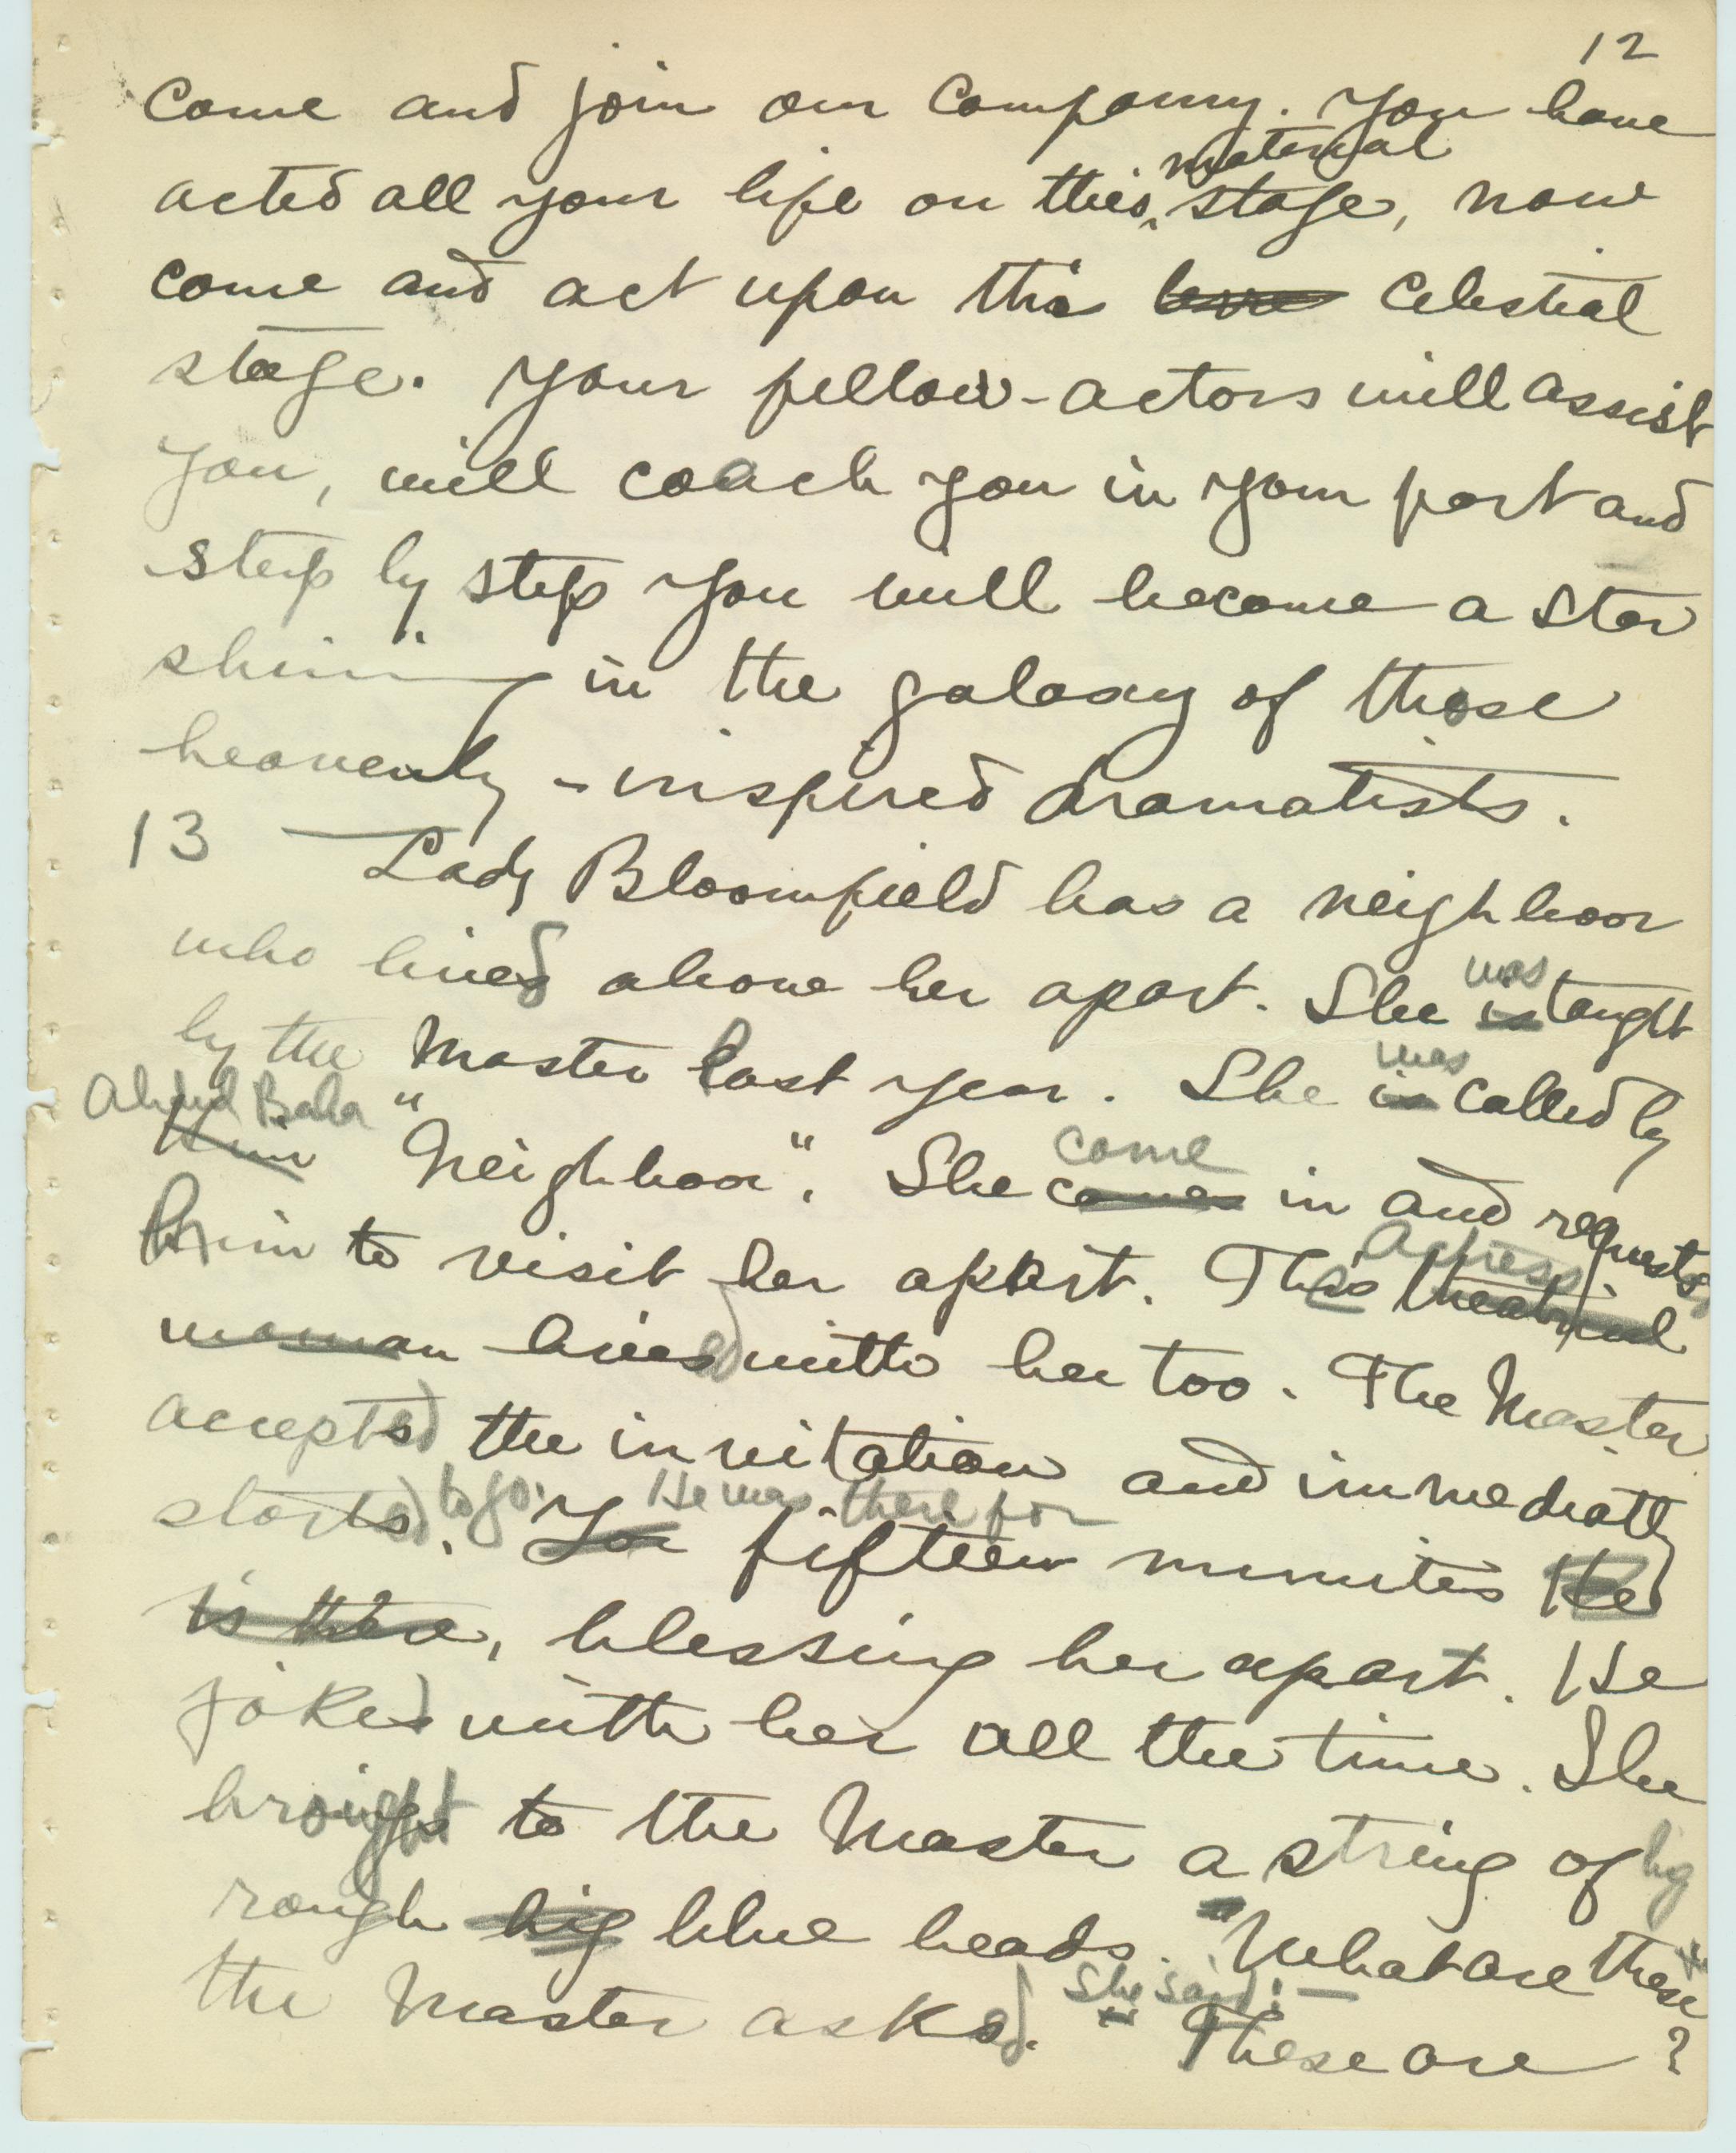 12
come and join our company. You have
material
acted all your life on this ^ stage, now
come and act upon this celestial
stage. Your fellow-actors will assist
you, will coach you in your part and
step by step you will become a star
shining in the galaxy of those
heavenly-inspired dramatists.
13 — Lady Bloomfield has a neighbor
who lived above her apart. She was is taught
by the Master last year. She was is called by
Abdul Baha Him "Neighbor". She came comes in and requested
him to visit her apart. The actress theatrical
woman lived with her too. The Master
accepted the invitation and immediately
started to go. For He was there for fifteen minutes He
is there, blessing her apart. He
joked with her all the time. She
brought to the Master a string of big
rough big blue beads. "What are these?"
the Master asked. She said:— "These are